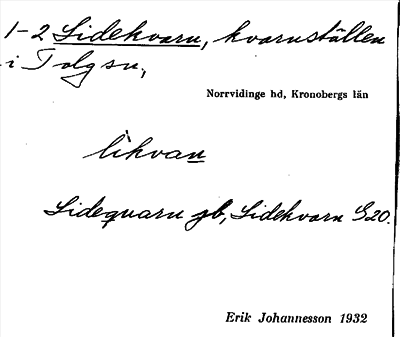 1-2 Lidekvarn, kvarnställen
i Tolgsn,
Norrvidinge hd, Kronobergs län
likvan
Lidequarn gb, Lidekvarn G20.
Erik Johannesson 1932